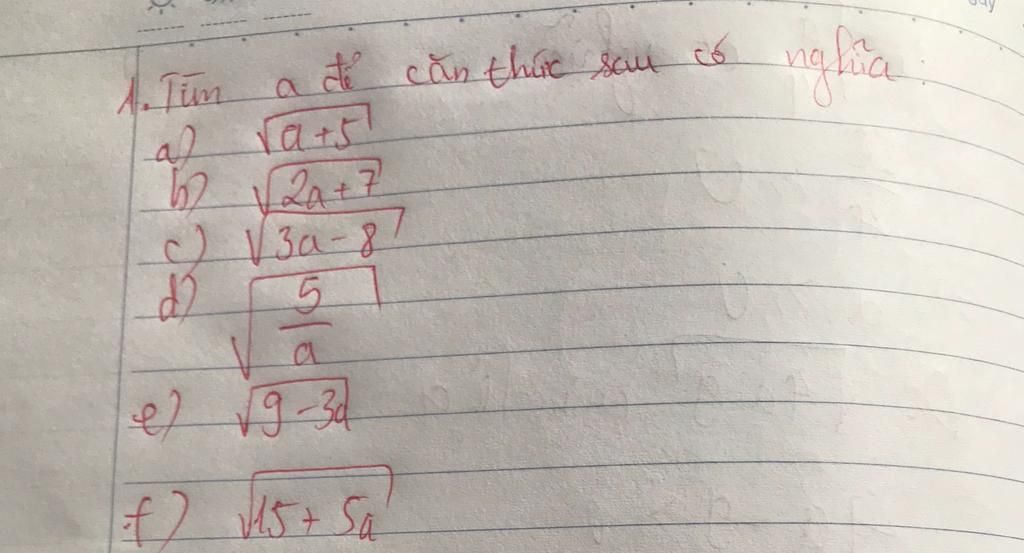 1. Tìm a để căn thức sau có nghĩa:
a) √(a+5)
b) √(2a+7)
c) √(3a-8)
d) √(5/a)
e) √(9-3a)
f) √(15+5a)